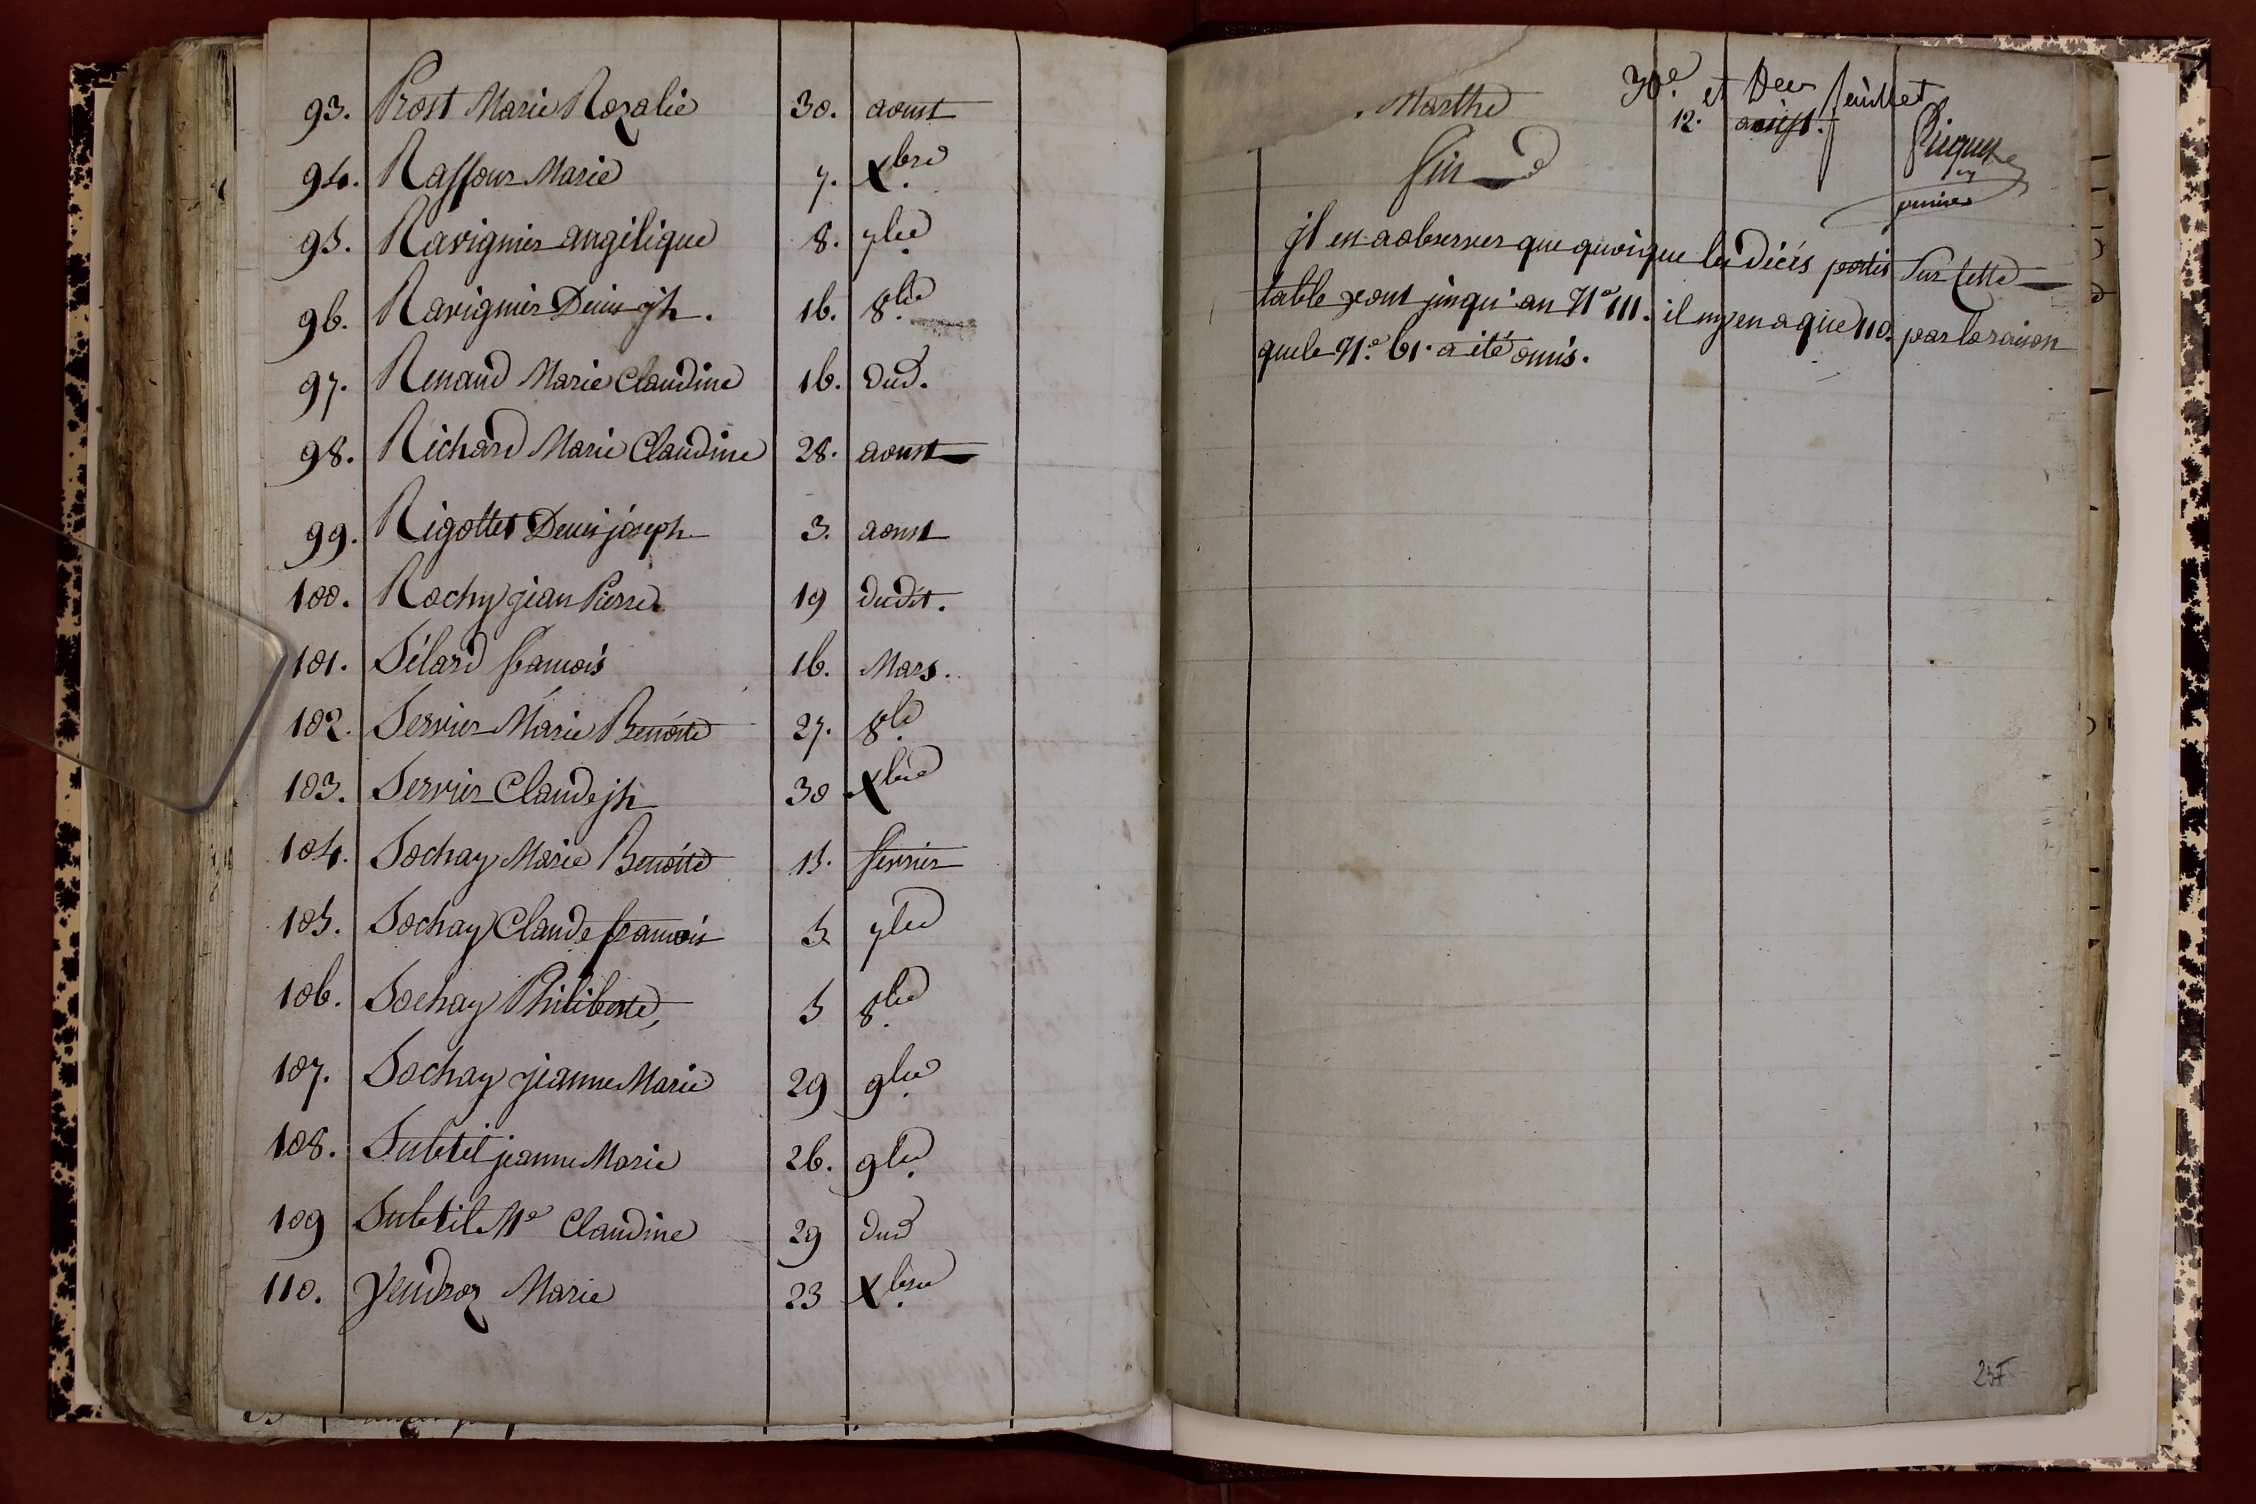 93. Prost Marie Rozalie 30. aoust
94. Raffour Marie 7. Xbre
95. Ravignier angélique 8. 7bre
96. Ravignier Denis jh. 16. 8bre
97. Renaud Marie Claudine 16. dud.
98. Richard Marie Claudine 28. aoust
99. Rigottet Denis joseph 3. aoust
100. Rochy jean Pierre 19 dudit.
101. Sélard francois 16. Mars.
102. Servier Marie Benoite 27. 8bre
103. Servier Claude jh 30 Xbre
104. Sochay Marie Benoite 15. fevrier
105. Sochay Claude francois 5 7bre
106. Sochay Philiberte, 5 8bre
107. Sochay jeanne Marie 29 9bre
108. Subtil jeanne Marie 26. 9bre
109 Subtil Me Claudine 29 dud
110. Yendroz Marie 23 Xbre
Marthe
12. aoust.
fin
jl est a observer que quoique les décés portés sur cette
table vont jusqu'au No 111. il n'y en a que 110. par la raison
que le No. 61. a été omis.
237